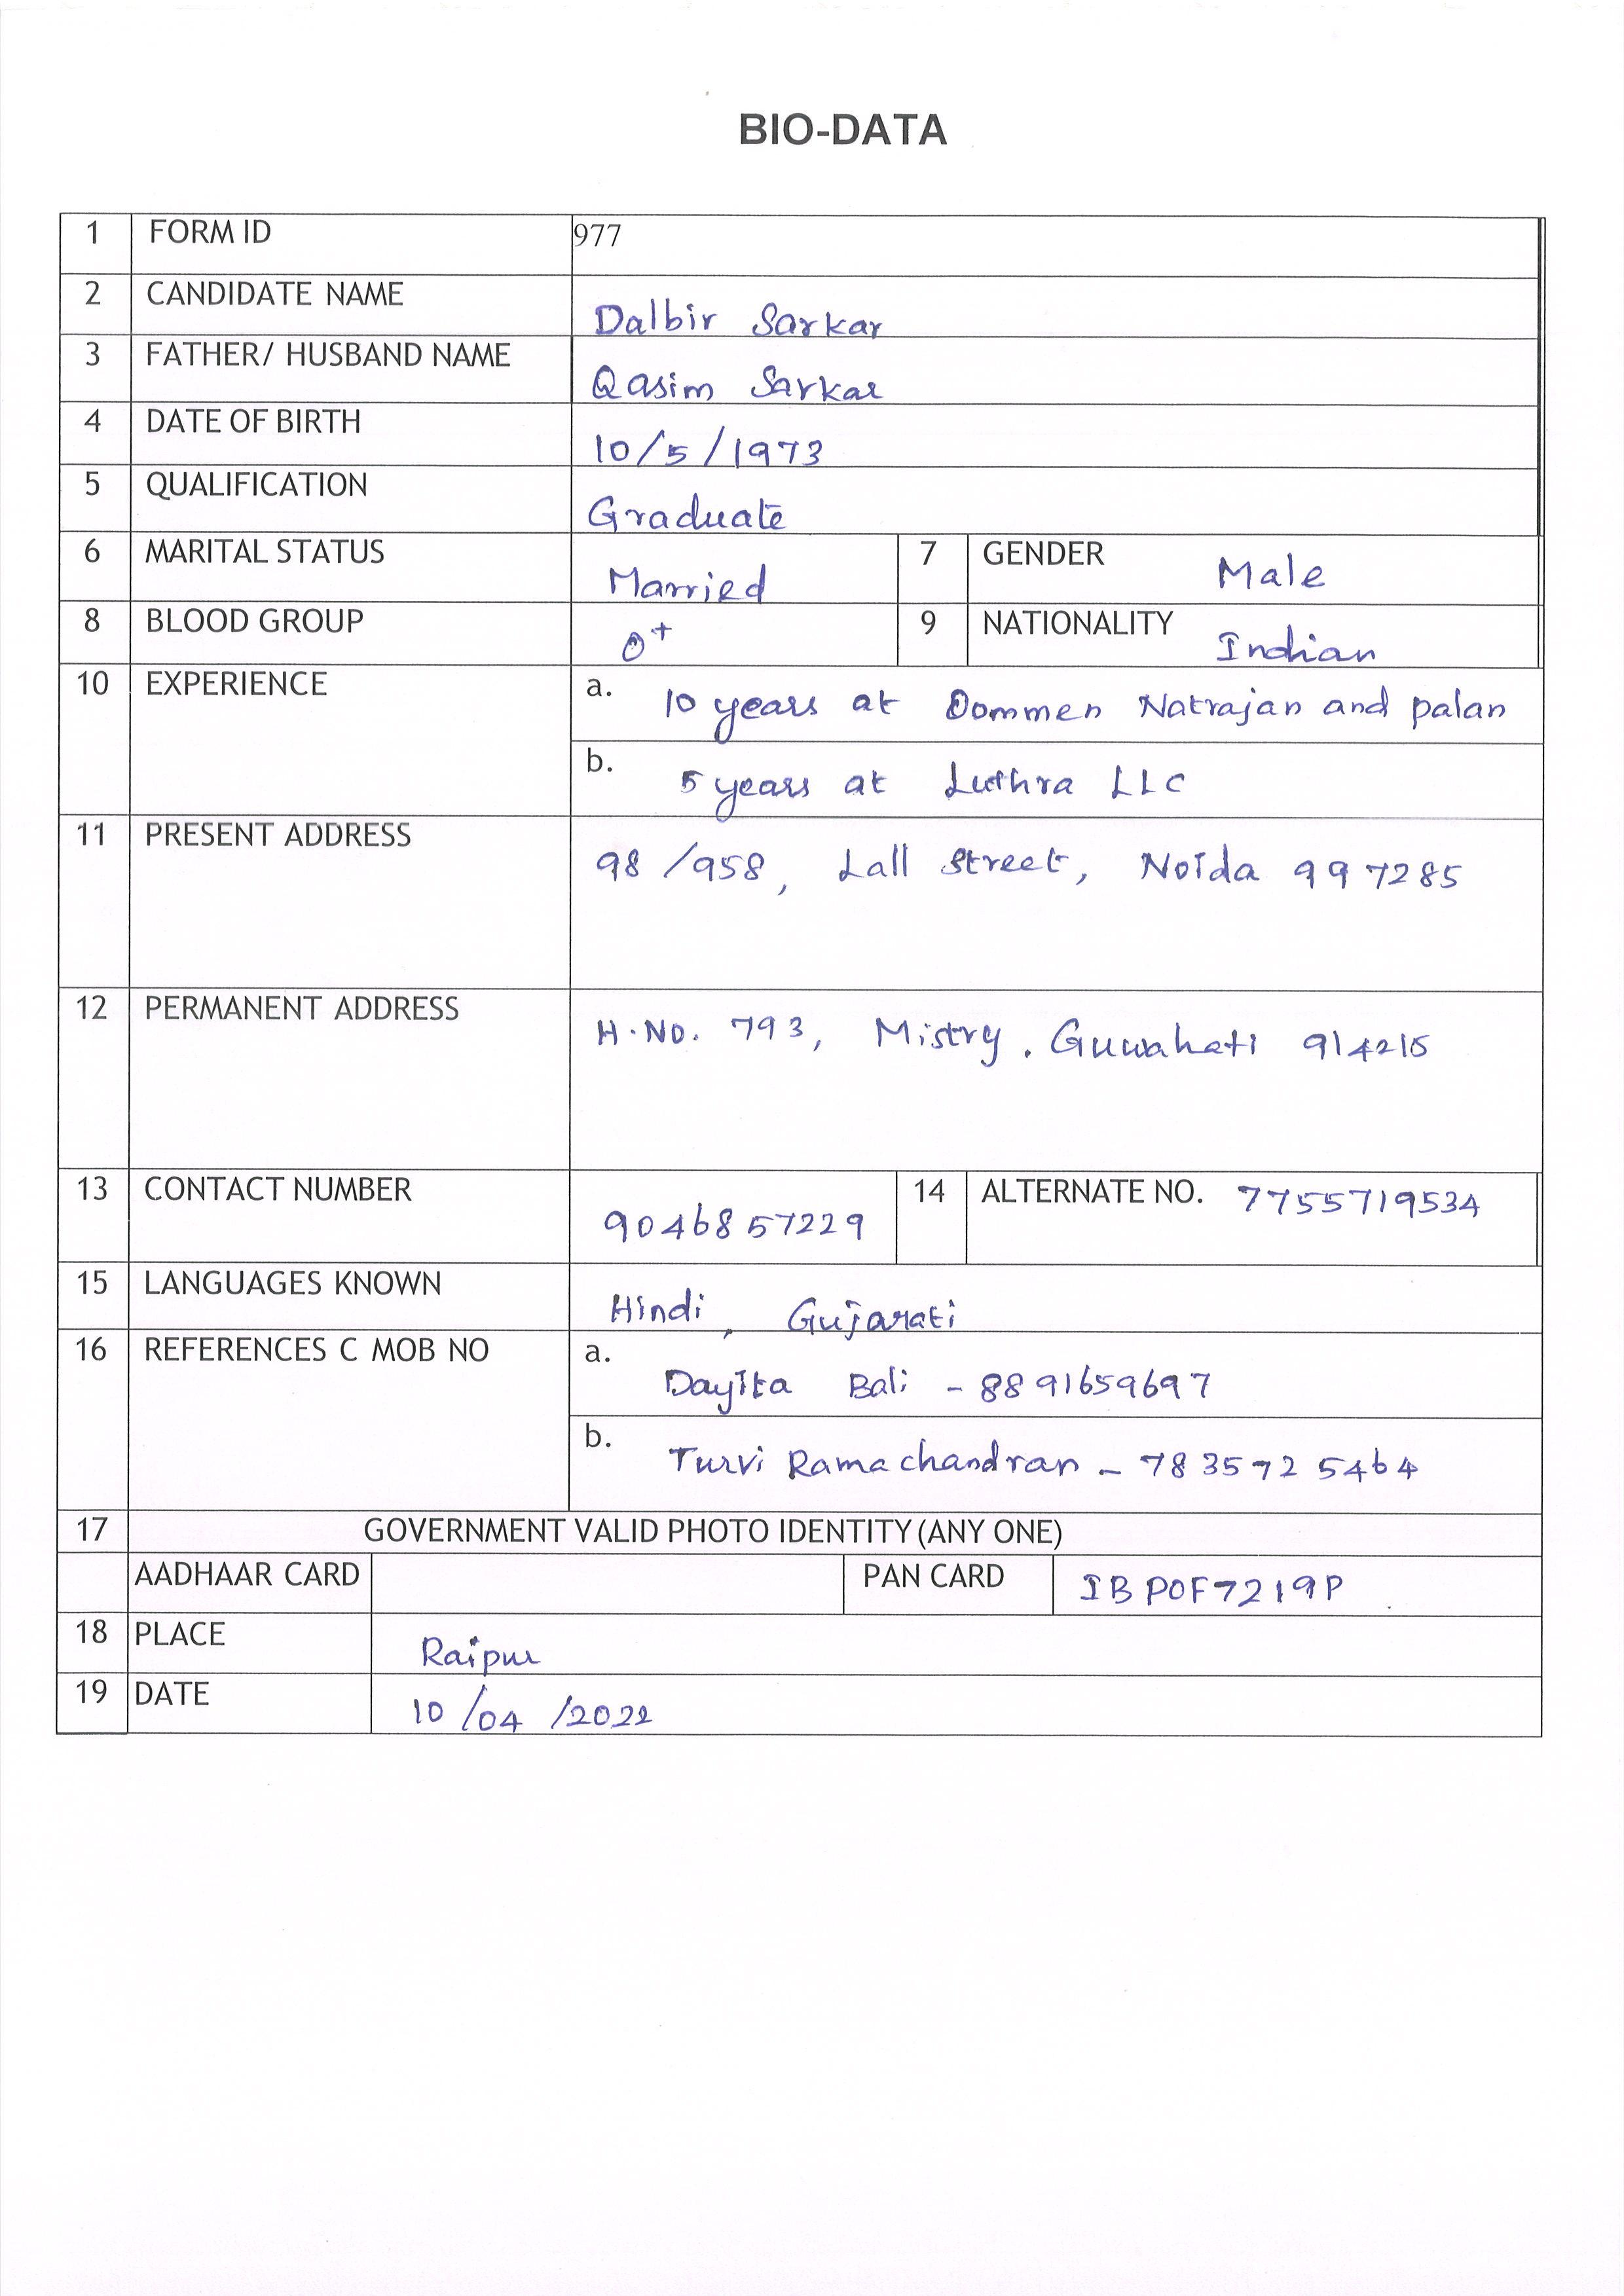 BIO-DATA
1 FORM ID 977
2 CANDIDATE NAME Dalbir Sarkar
3 FATHER/ HUSBAND NAME Qasim Sarkar
4 DATE OF BIRTH 10/5/1973
5 QUALIFICATION Graduate
6 MARITAL STATUS Married 7 GENDER Male
8 BLOOD GROUP O+ 9 NATIONALITY Indian
10 EXPERIENCE a. 10 years at Oommen Natrajan and palan
b. 5 years at Luthra LLC
11 PRESENT ADDRESS 98/958, Lall Street, Noida 997285
12 PERMANENT ADDRESS H.No. 793, Mistry. Guwahati 914215
13 CONTACT NUMBER 9046857229 14 ALTERNATE NO. 7755719534
15 LANGUAGES KNOWN Hindi, Gujarati
16 REFERENCES C MOB NO a. Dayita Bali - 8891659697
b. Turvi Ramachandran - 7835725464
17 GOVERNMENT VALID PHOTO IDENTITY (ANY ONE)
AADHAAR CARD PAN CARD IBPOF7219P
18 PLACE Raipur
19 DATE 10/04/2022